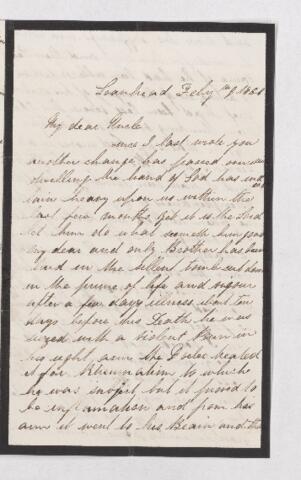 Loanhead Feby 1868
My dear Uncle
since I last wrote you
another change has passed over our
dwelling the hand of God has in
lain heavy upon us within the
last few months yet it is the Lord
let him do what seemeth him good
my dear and only Brother has been
laid in the silent tomb cut down
in the prime of life and vigour
after a few days illness about ten
days before his Death he was
seized with a violent Pain in
his right arm the Doctor treated
it for Rheumatism to which
he was subject but it proved to
be inflamation and from his
arm it went to his Brain and the